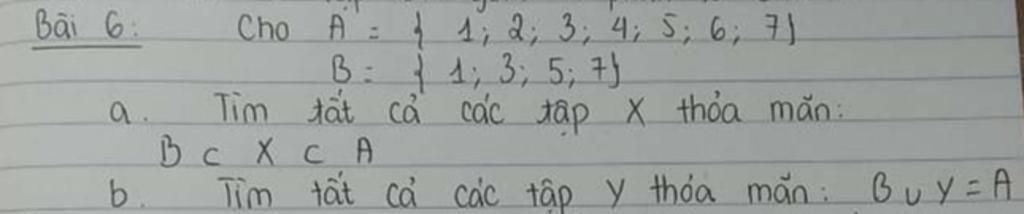 Bài 6: Cho A = { 1; 2; 3; 4; 5; 6; 7}
B = { 1; 3; 5; 7}
a. Tìm tất cả các tập X thỏa mãn:
B ⊂ X ⊂ A
b. Tìm tất cả các tập Y thỏa mãn: B ∪ Y = A